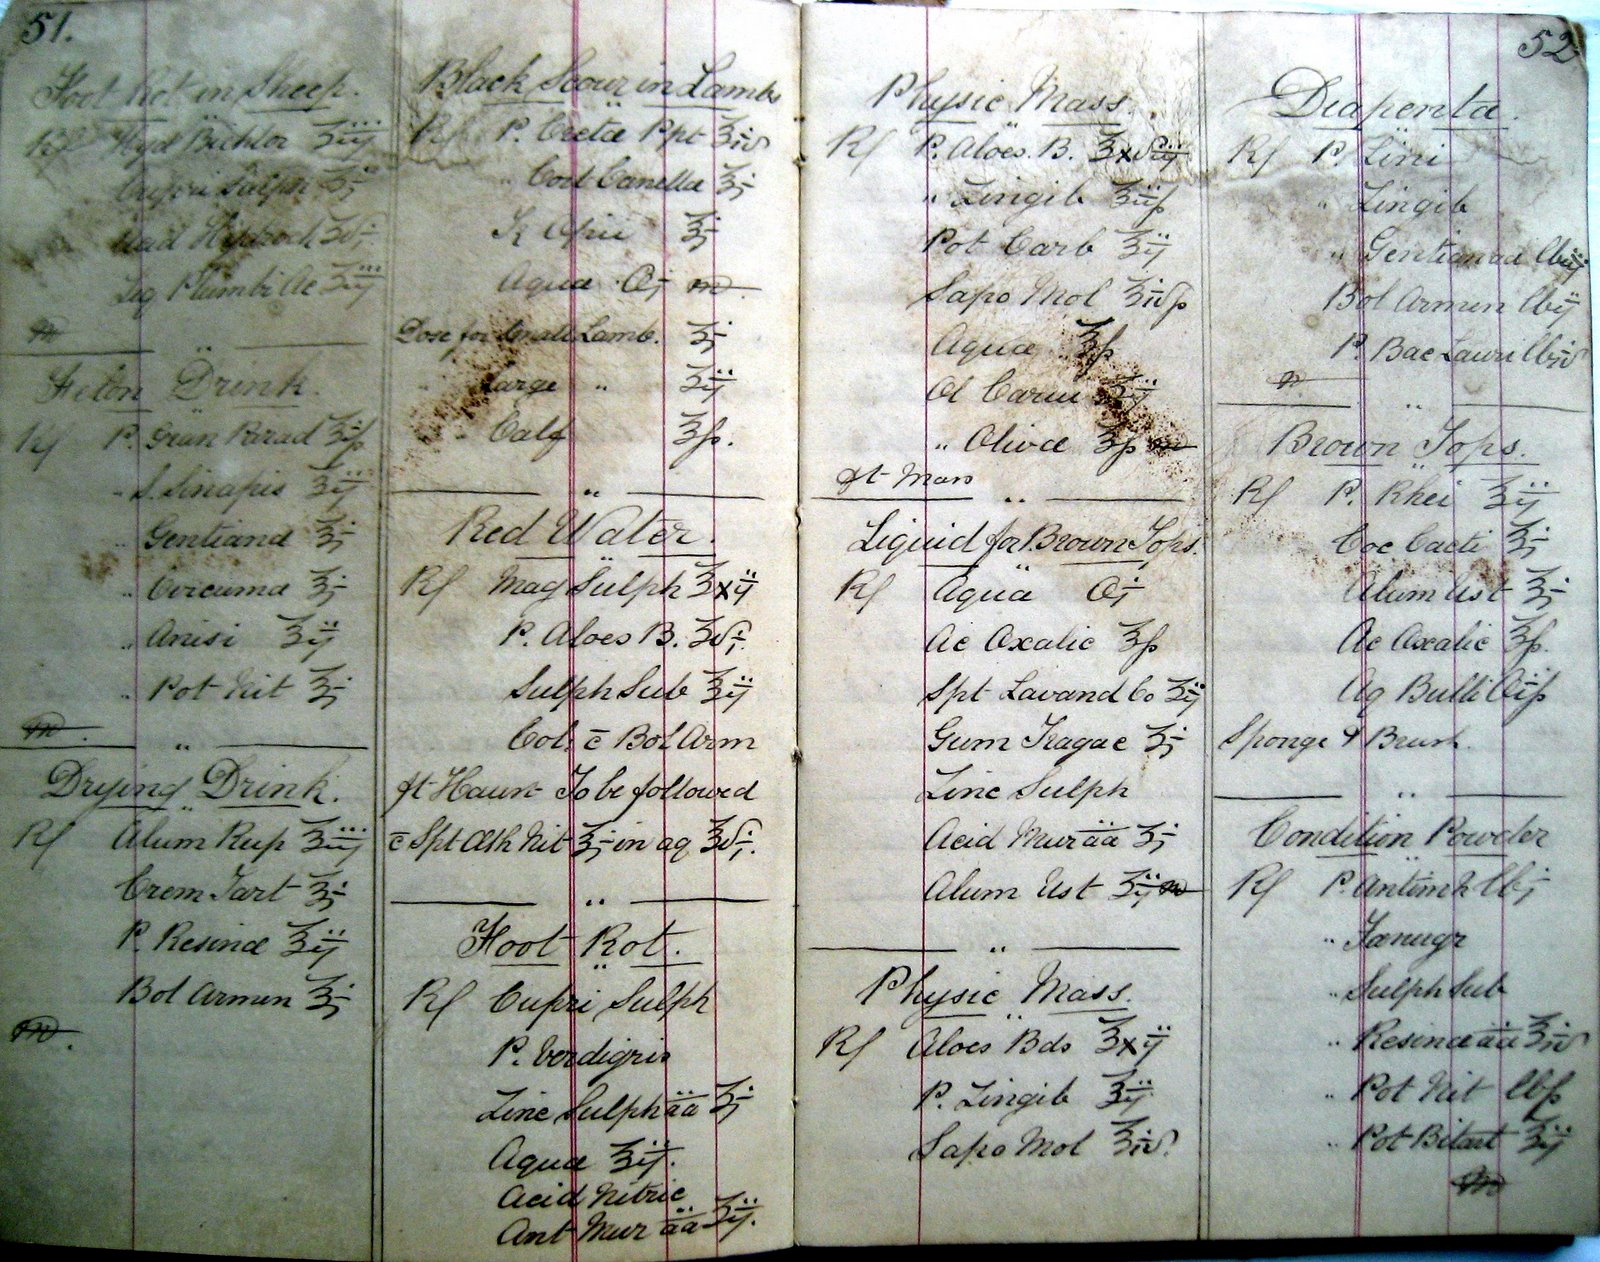 51.
Foot Rot in Sheep.
Rx Hyd Bichlor ʒiij
Cupri Sulph ʒj
Liq Plumbi Ac ʒiij
m
Felon Drink.
Rx P. Gran Parad ʒiſs
" S. Sinapis ʒij
" Gentianæ ʒj
" Curcuma ʒj
" Anisi ʒij
" Pot Nit ʒj
m.
Drying Drink.
Rx Alum Rup ʒiij
Crem Tart ʒj
P. Resinæ ʒij
Bol Armen ʒj
m.
Black Scour in Lambs
Rx P. Cretæ Ppt ʒiv
" Cort Canellæ ʒj
Tr Opii ʒj
Aqua Oj m.
Dose for Small Lamb. ʒj
" Large " ʒij
" Calf ʒſs.
Red Water.
Rx Mag Sulph ʒxij
P. Aloes B. ʒvj.
Sulph Sub ʒij
Col, c̄ Bol Arm
ft Haust To be followed
c̄ Spt Æth Nit ʒj in aq ʒvj.
Foot Rot.
Rx Cupri Sulph
P. Verdigris
Zinc Sulph āā ʒj
Aqua ʒij.
Acid Nitric
Ant Mur āā ʒij.
52
Physic Mass.
Rx P. Aloes. B. ʒxviij
" Zingib ʒijſs
Pot Carb ʒij
Sapo Mol ʒivſs
Aqua ʒſs
Ol Carui ʒij
" Olivæ ʒſs m
ft Mass
Liquid for Brown Tops.
Rx Aqua Oj
Ac Oxalic ʒſs
Spt Lavand Co ʒij
Gum Tragac ʒj
Zinc Sulph
Acid Mur āā ʒj
Alum Ust ʒij m
Physic Mass.
Rx Aloes Bds ʒxij
P. Zingib ʒij
Sapo Mol ʒiv.
Diapenta.
Rx P. Lini
" Zingib
" Gentianæ āā lbiij
Bol Armen lbij
P. Bac Lauri lbiv
m.
Brown Tops.
Rx P. Rhei ʒij
Coc Cacti ʒj
Alum Ust ʒj
Ac Oxalic ʒſs.
Aq Bulli Oiſs
Sponge & Brush.
Condition Powder
Rx P. Antim N lbj
" Fœnugr
" Sulph Sub
" Resinæ āā ʒiv
" Pot Nit lbſs
" Pot Bitart ʒij
m